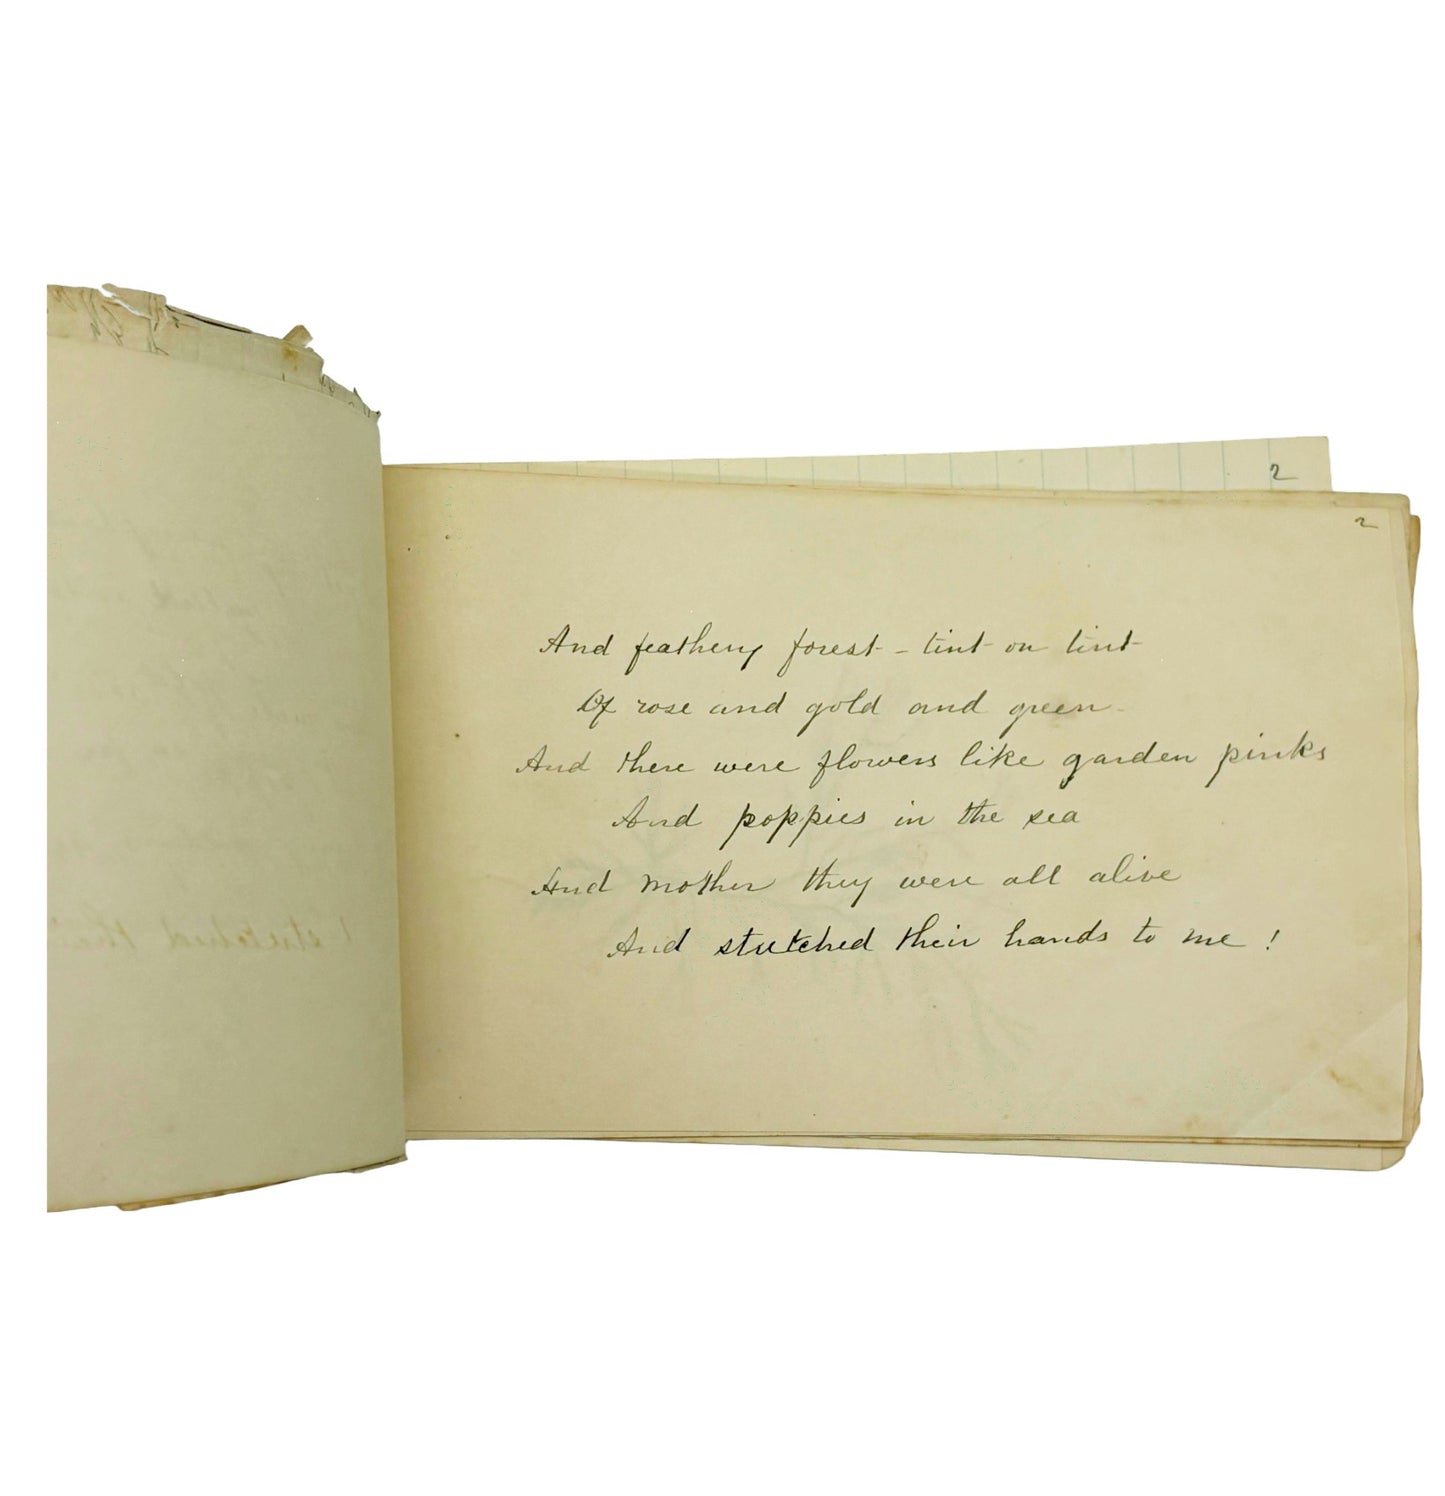 2
2
And feathery forest - tint on tint
Of rose and gold and green -
And there were flowers like garden pinks
And poppies in the sea
And mother they were all alive
And stretched their hands to me !
stretched their